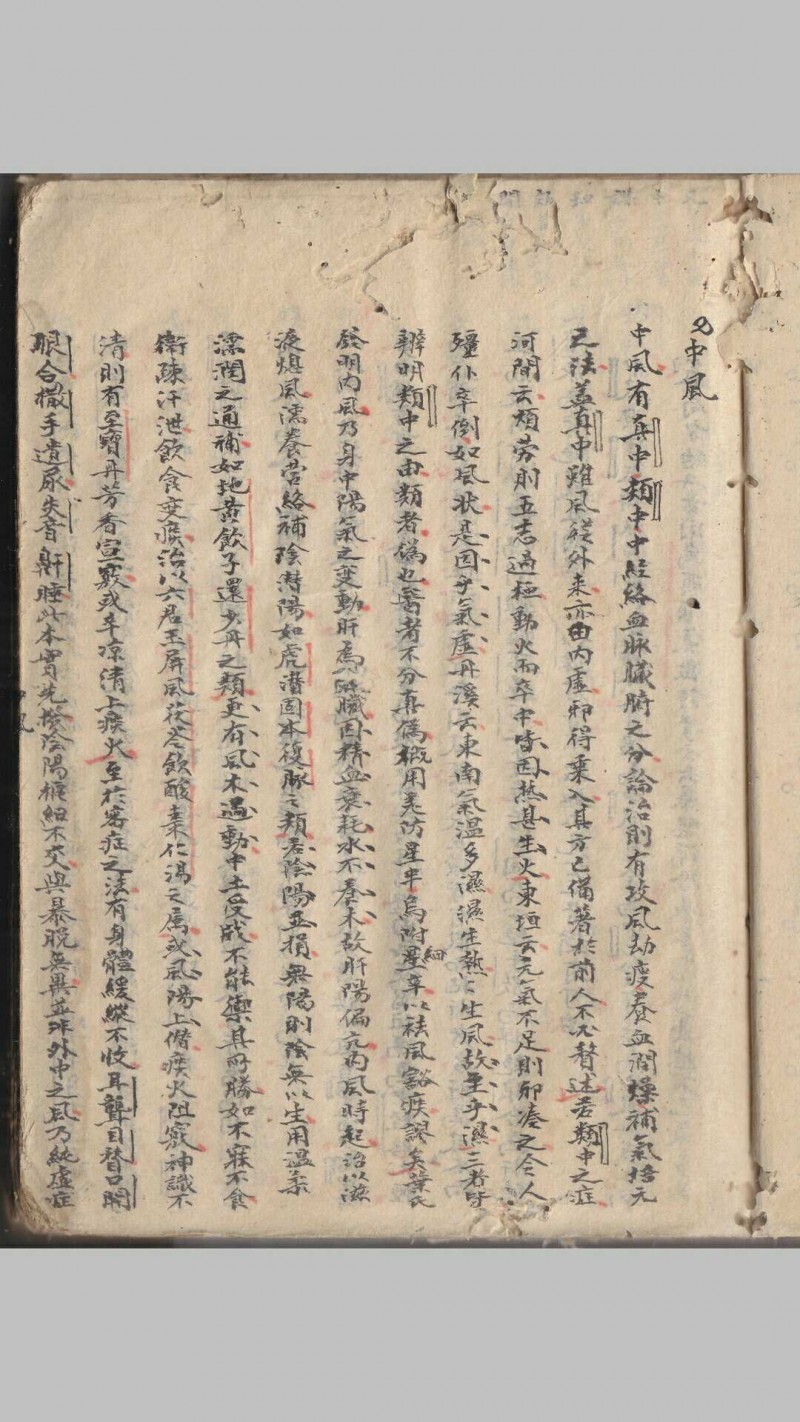 中風
中風有真中類中中經絡血脉臟腑之分論治則有攻風劫痰養血潤燥補氣培元
之法蓋真中雖風從外来亦由內虛邪得乘入其方已備著於前人不必贅述若類中之症
河間云煩勞則五志過極動火而卒中皆因热甚生火東垣云元氣不足則邪凑之令人
殭仆卒倒如風狀是因乎氣虛丹溪云東南氣溫多濕濕生熱〻生風故至乎濕三者皆
辨明類中之由類者偽也醫者不分真偽概用羌防星半烏附細辛以祛風豁痰謬矣葉氏
發明內風乃身中陽氣之变動肝為風臟因精血衰耗水不養木故肝陽偏亢內風時起治以滋
液熄風濡養营絡補陰潛陽如虎潛固本復脉之類若陰陽並損無陽則陰無以生用溫柔
濡潤之通補如地黃飲子還少丹之類更有風木過動中土受戕不能禦其所勝如不寐不食
衛疎汗泄飲食变痰治以六君玉屏風茯苓飲酸棗仁湯之属或風陽上僭痰火阻竅神識不
清則有至寶丹芳香宣竅或辛凉清上痰火至於客症之法有身體緩縱不收耳聾目瞀口開
眼合撒手遺尿失音鼾睡此本實先撥陰陽樞紐不交與暴脫無異並非外中之风乃純虛症